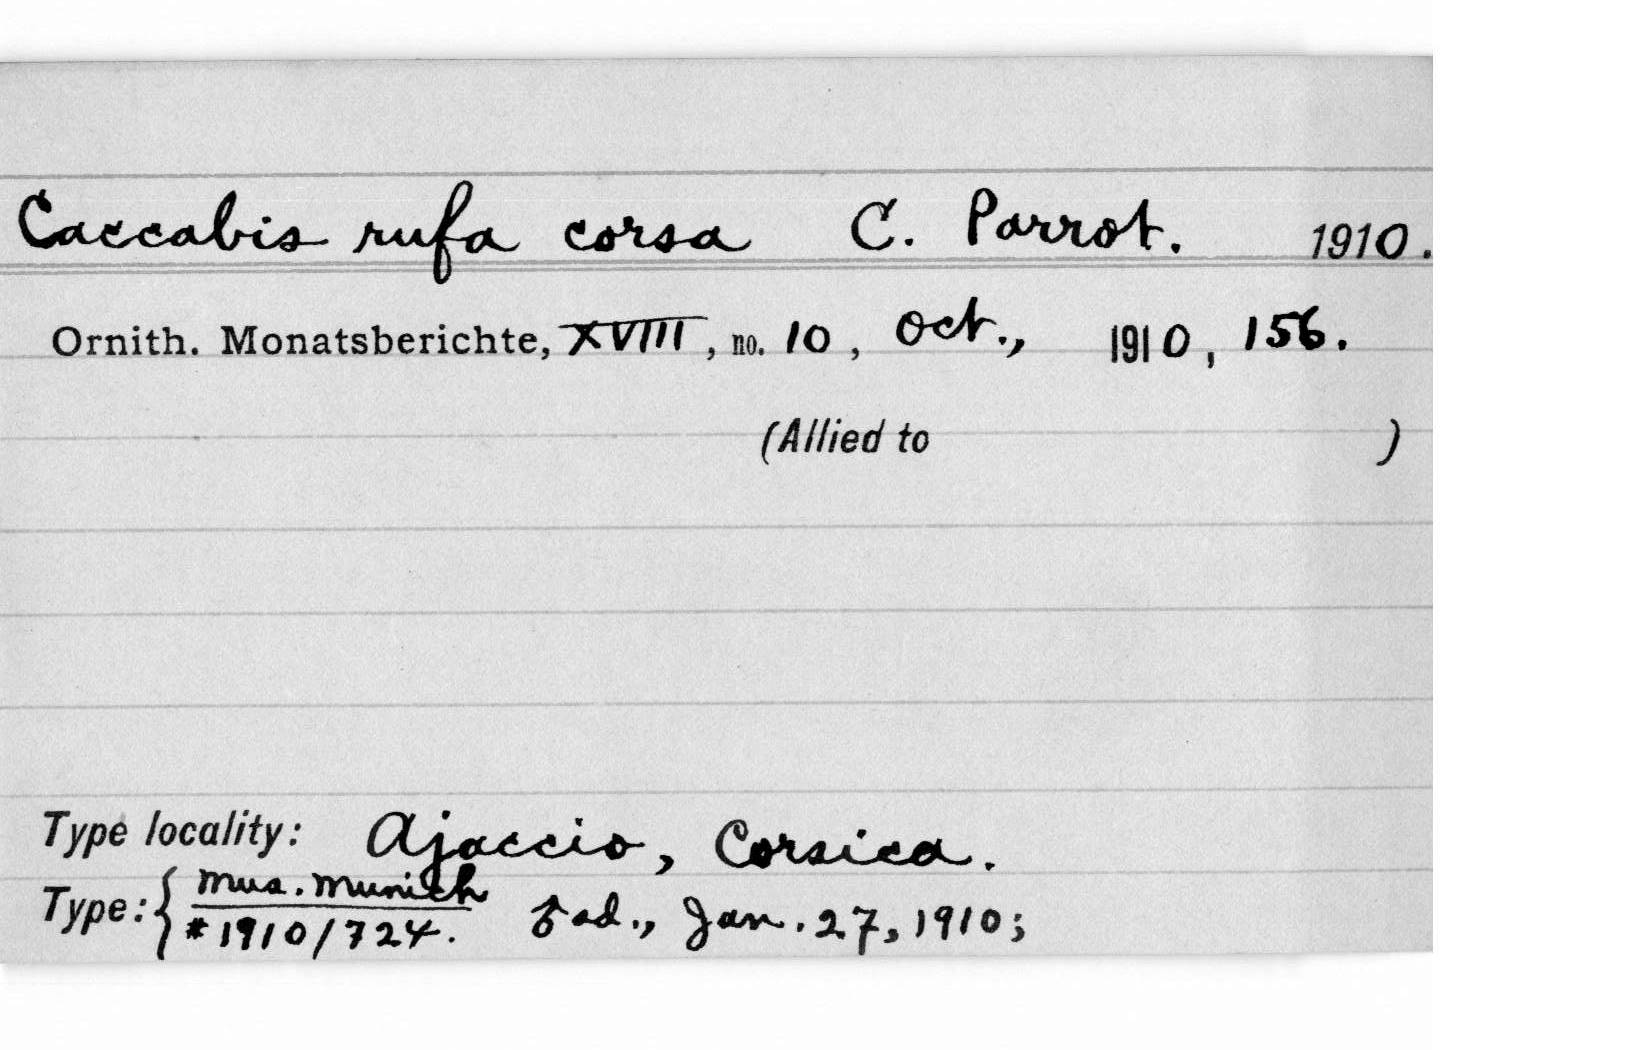 Caccabis rufa corsa C. Parrot. 1910.
Ornith. Monatsberichte, XVIII, no. 10, Oct., 1910, 156.
(Allied to )
Type locality: Ajaccio, Corsica.
Type: { Mus. Munich
#1910/724. ♂ ad., Jan. 27, 1910;